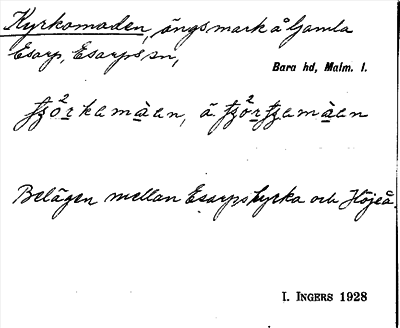 Kyrkomaden, ängsmark å Gamla
Esarp, Esarps sn,
Bara hd, Malm. l.
Belägen mellan Esarps kyrka och Höjeå.
I. INGERS 1928